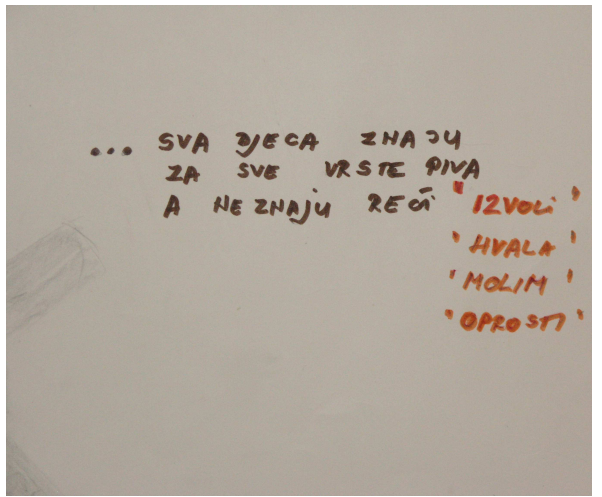 ... SVA DJECA ZNAJU
ZA SVE VRSTE PIVA
A NE ZNAJU REĆI 'IZVOLI'
'HVALA'
'MOLIM'
'OPROSTI'